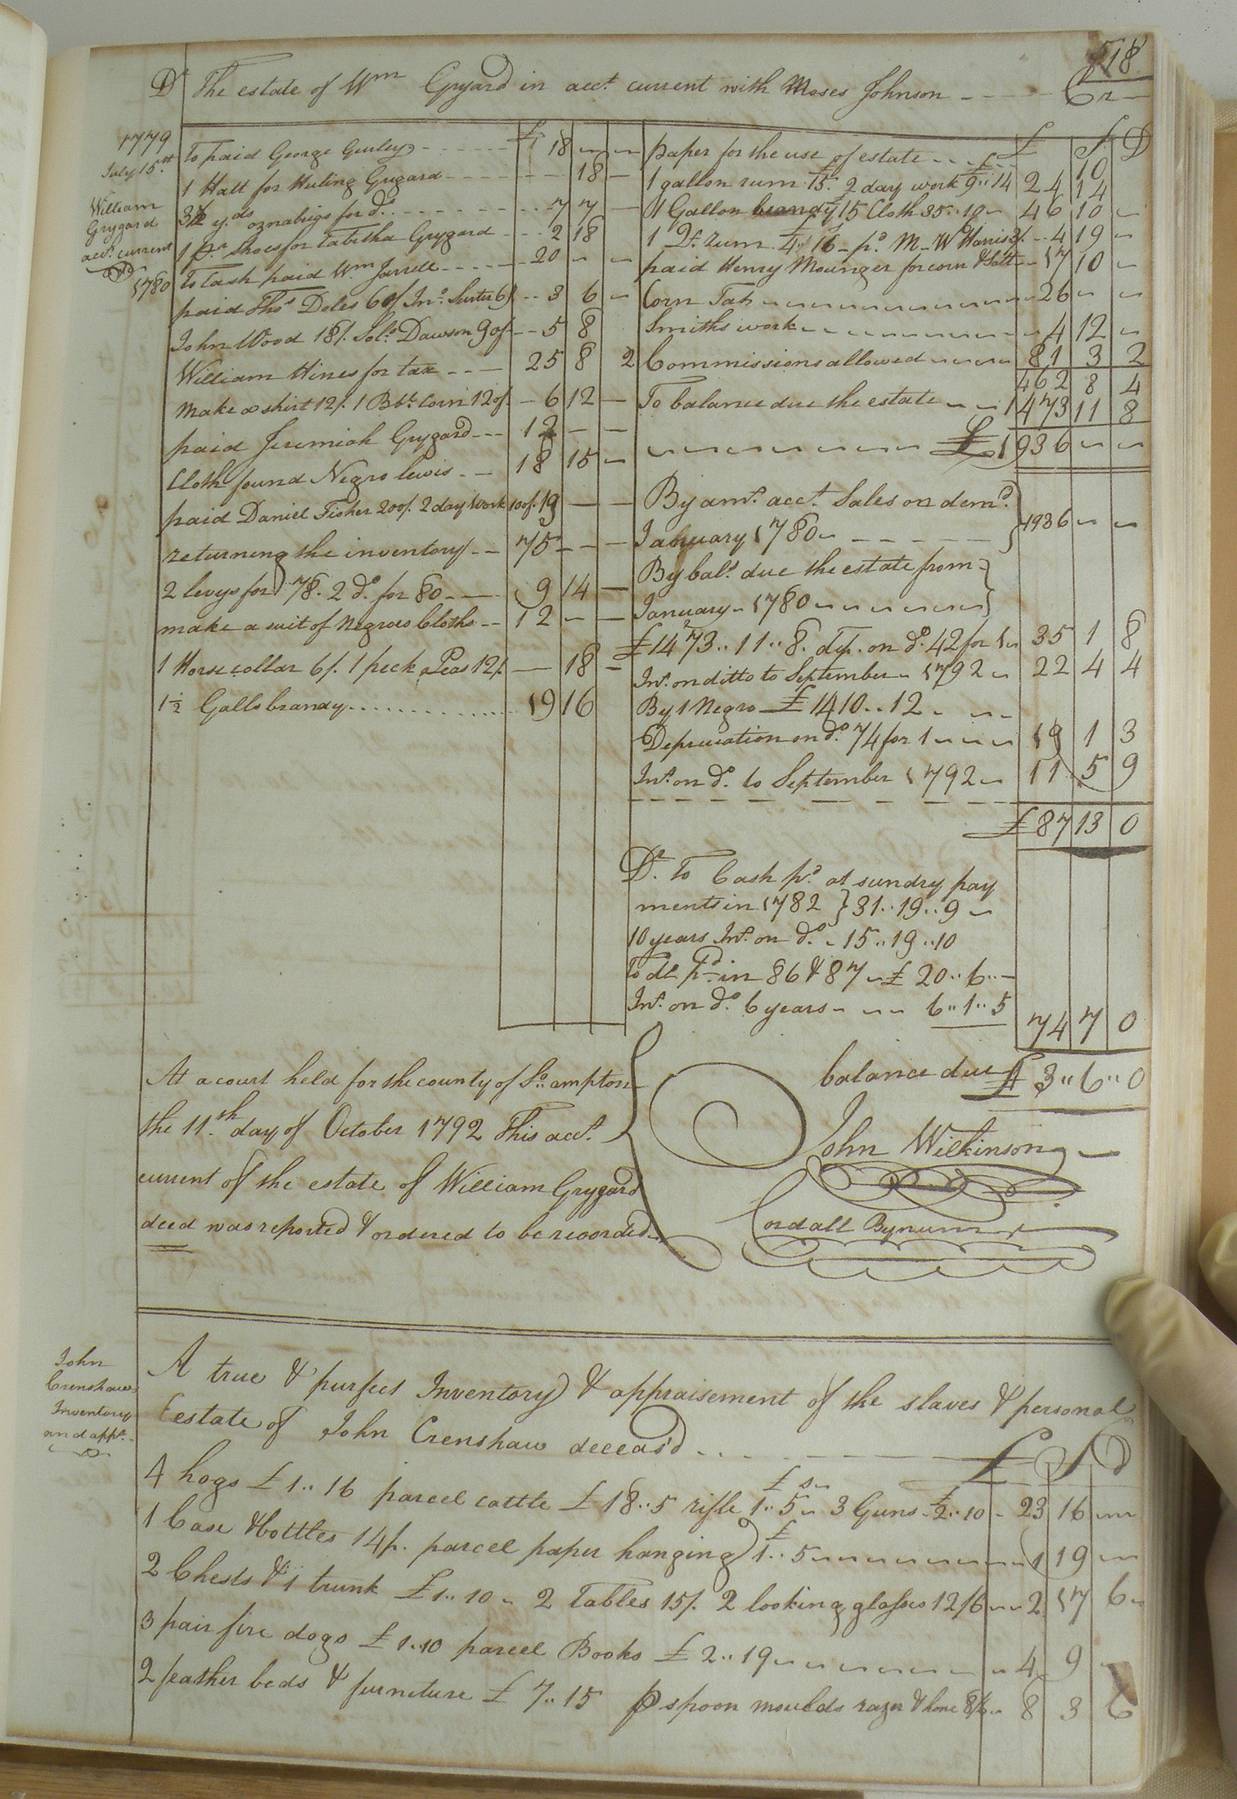 518
Dr The estate of Wm Grygard in acct. current with Moses Johnson Cr
1779
July 15th
William
Grygard
acct. current
1780
£
To paid George Gurley 18
1 Hatt for Huling Grygard 18
3½ yds. oznabrigs for do. 7 7
1 pr shoes for Tabitha Grygard 2 18
To Cash paid Wm Jarrell 20
paid Thos Doles 60/ Jno. Suter 6/ 3 6
John Wood 18/. Solo. Dawson 90/ 5 8
William Hines for tax 25 8 2
Make a shirt 12/. 1 Bbl. Corn 120/. 6 12
paid Jeremiah Grygard 12
Cloth found Negro lewis 18 15
paid Daniel Fisher 200/. 2 day work 100/. 19
returning the inventory 75
2 levys for 78. 2 do. for 80 9 14
make a suit of Negroes Cloths 12
1 Horse collar 6/. 1 peck Peas 12/. 18
1½ Galls brandy 19 16
£ S D
paper for the use of estate 10
1 gallon rum £15. 2 day work £9..14 24 14
1 Gallon brandy 15 Cloth 35..10 46 10
1 Qt. rum £4..16 pd. M W Harris 3/. 4 19
paid Henry Mounger for corn & salt 57 10
Corn Tax 26
Smiths work 4 12
Commissions allowed 81 3 2
462 8 4
To balance due the estate 1473 11 8
£ 1936
By amt. acct. Sales on demd.
January 1780 1936
By bale. due the estate from
January 1780
£1473..11..8. dep. on do. 42 for 1 35 1 8
Int. on ditto to September 1792 22 4 4
By 1 Negro £1410..12
Depreciation on do. 74 for 1 19 1 3
Int. on do. to September 1792 11 5 9
£87 13 0
Dr. To Cash pd. at sundry pay
ments in 1782 } 31..19..9
10 years Int. on do. 15..19..10
To do pd. in 86 & 87 £20..6..
Int. on do 6 years 6..1..5
74 7 0
balance due £13..6..0
At a court held for the county of So.ampton
the 11th. day of October 1792 This acct.
current of the estate of William Grygard
deced was reported & ordered to be recorded
John Wilkinson
Cordall Bynum
John
Crenshaws
Inventory
and appt.
A true & purfect Inventory & appraisement of the slaves & personal
Estate of John Crenshaw deceas'd £ S D
4 hogs £1..16 parcel cattle £18..5 rifle £1..5 3 Guns £2..10 23 16
1 Case & bottles 14/. parcel paper hanging £1..5 1 19
2 Chests & 1 trunk £1..10 2 Tables 15/. 2 looking glasses 12/6 2 17 6
3 pair fire dogs £1..10 parcel Books £2..19 4 9
2 feather beds & furniture £7..15 p spoon moulds razor & hone 8/6 8 3 6